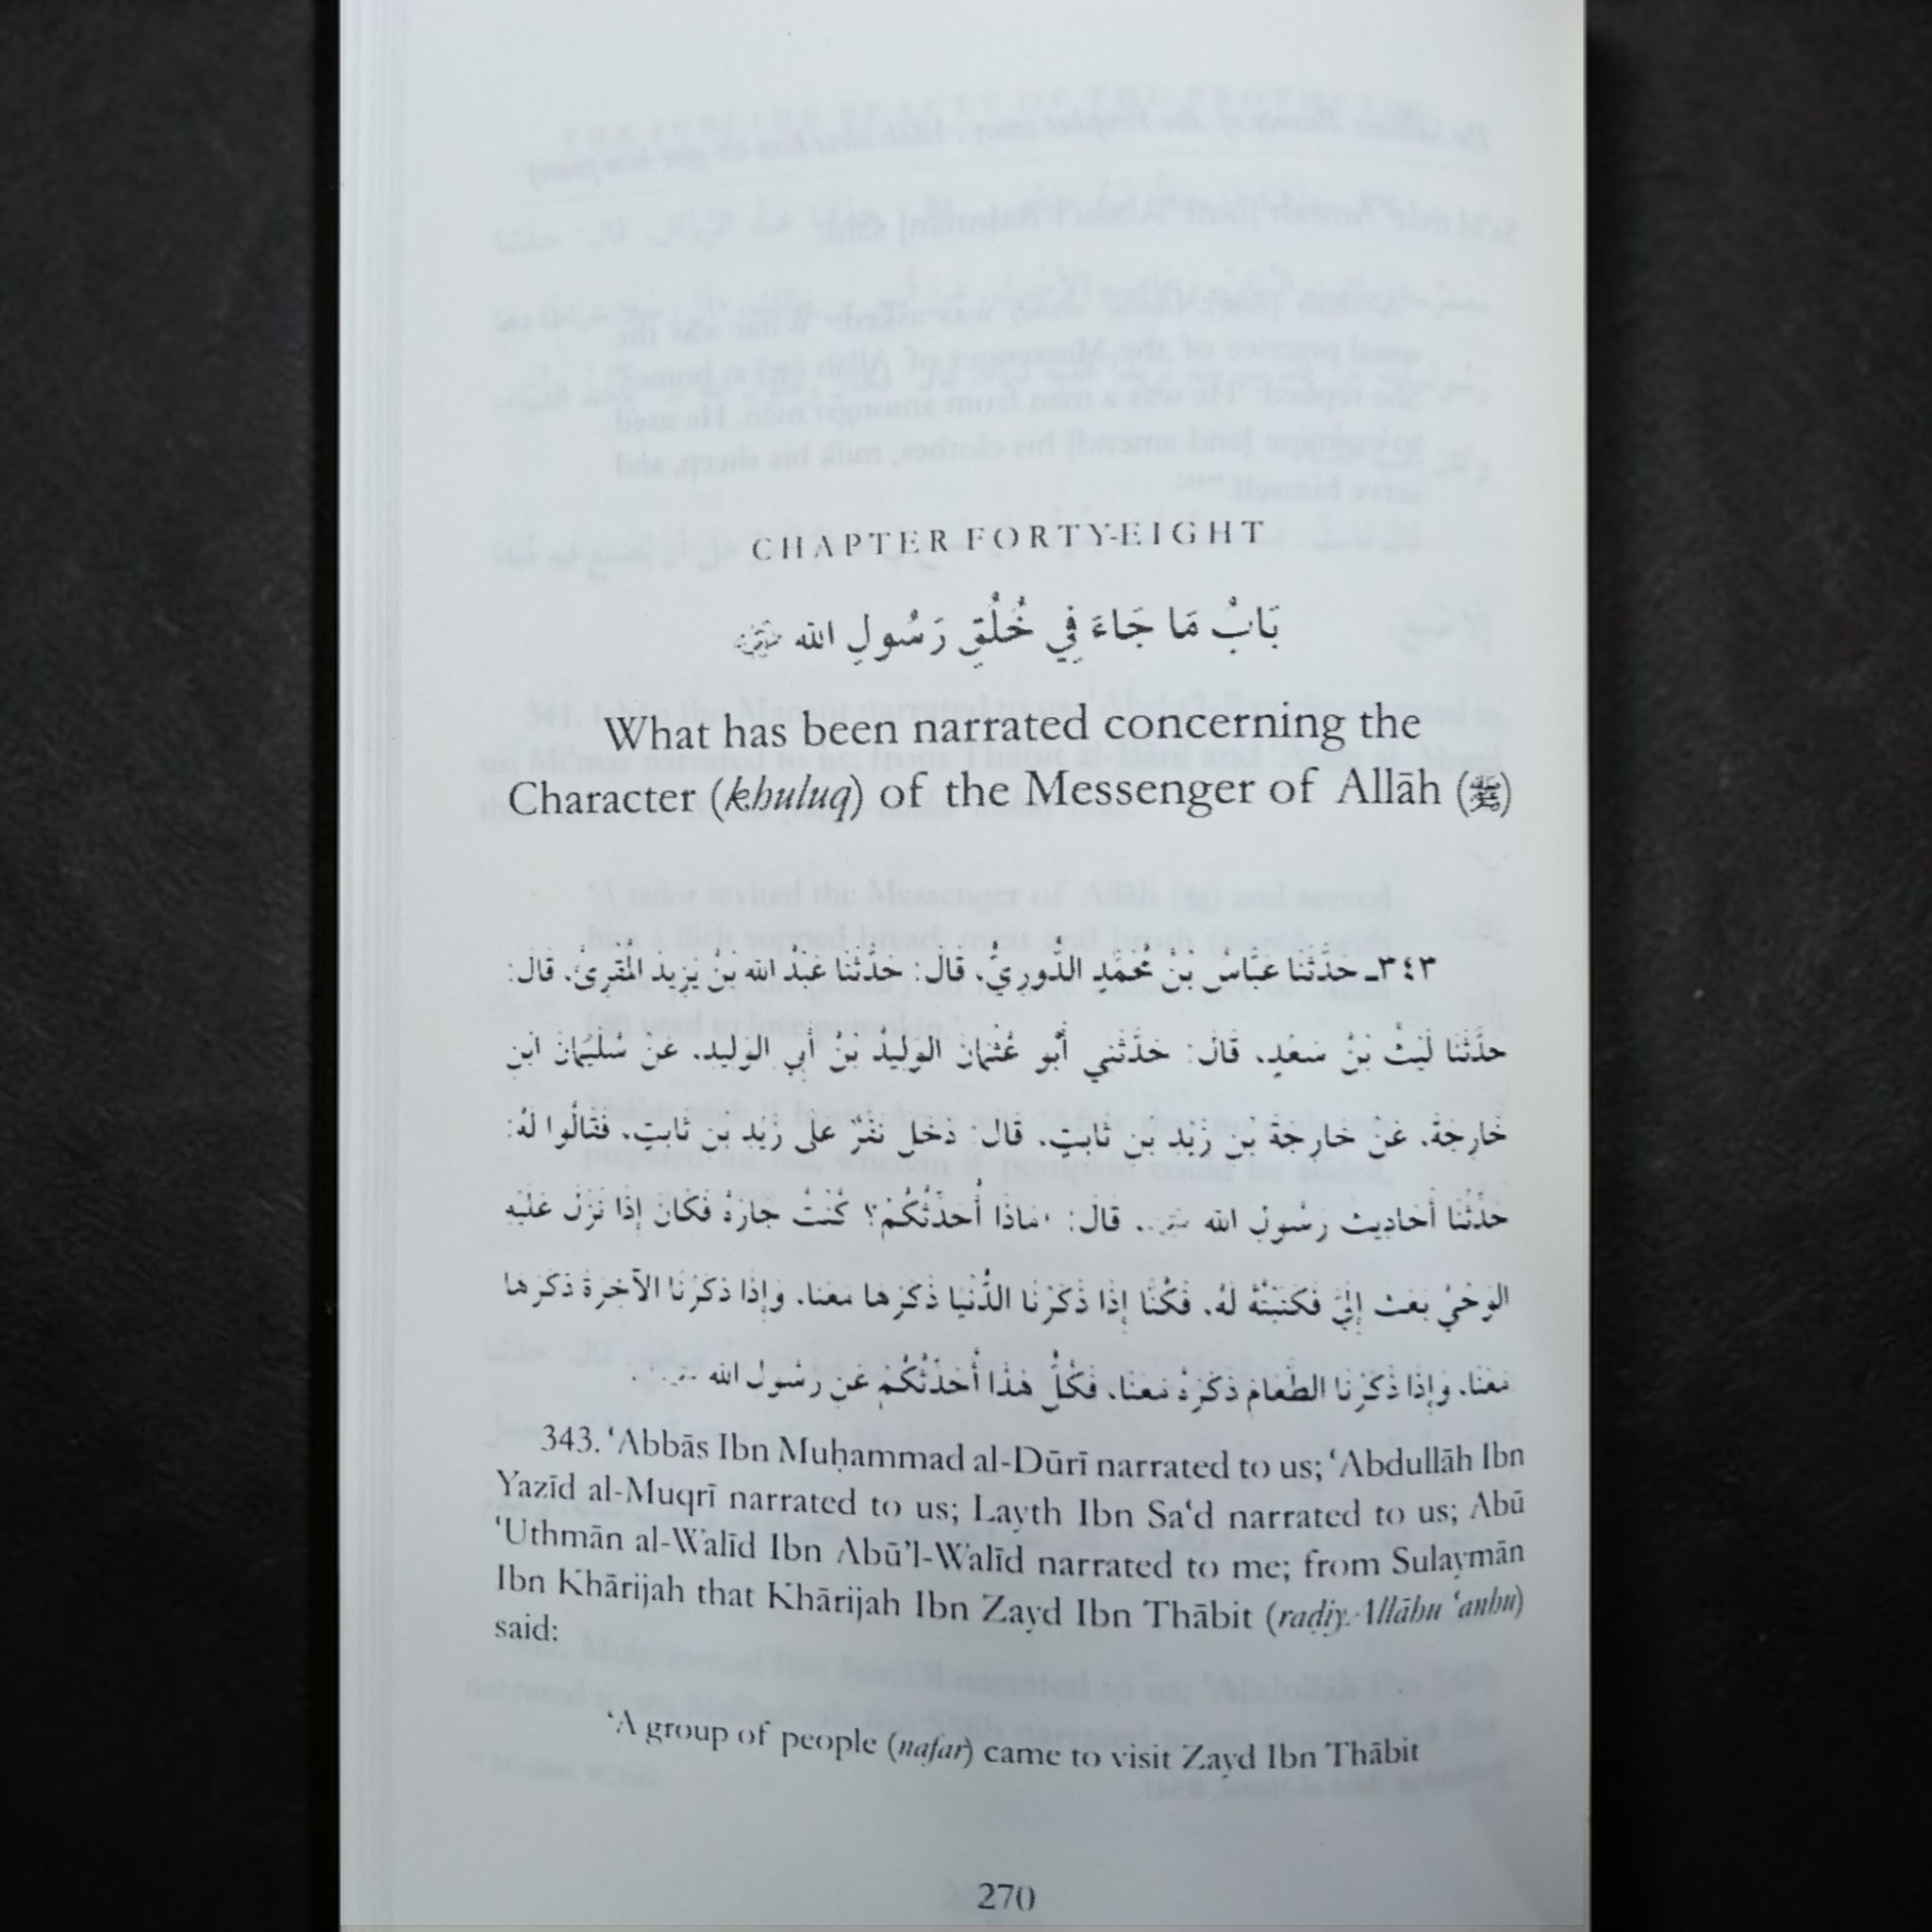 CHAPTER FORTY-EIGHT
بَابُ مَا جَاءَ فِي خُلُقِ رَسُولِ الله ﷺ
What has been narrated concerning the
Character (khuluq) of the Messenger of Allāh (ﷺ)
٣٤٣ـ حَدَّثَنَا عَبَّاسُ بْنُ مُحَمَّدٍ الدُّورِيُّ، قَالَ: حَدَّثَنَا عَبْدُ الله بْنُ يَزِيدَ المُقْرِئُ، قَالَ:
حَدَّثَنَا لَيْثُ بْنُ سَعْدٍ، قَالَ: حَدَّثَنِي أَبُو عُثْمَانَ الوَلِيدُ بْنُ أَبِي الوَلِيدِ، عَنْ سُلَيْمَانَ ابْنِ
خَارِجَةَ، عَنْ خَارِجَةَ بْنِ زَيْدِ بْنِ ثَابِتٍ، قَالَ: دَخَلَ نَفَرٌ عَلَى زَيْدِ بْنِ ثَابِتٍ، فَقَالُوا لَهُ:
حَدِّثْنَا أَحَادِيثَ رَسُولِ الله ﷺ، قَالَ: «مَاذَا أُحَدِّثُكُمْ؟ كُنْتُ جَارَهُ فَكَانَ إِذَا نَزَلَ عَلَيْهِ
الوَحْيُ بَعَثَ إِلَيَّ فَكَتَبْتُهُ لَهُ، فَكُنَّا إِذَا ذَكَرْنَا الدُّنْيَا ذَكَرَهَا مَعَنَا، وَإِذَا ذَكَرْنَا الآخِرَةَ ذَكَرَهَا
مَعَنَا، وَإِذَا ذَكَرْنَا الطَّعَامَ ذَكَرَهُ مَعَنَا، فَكُلُّ هَذَا أُحَدِّثُكُمْ عَنْ رَسُولِ الله ﷺ».
343. ‘Abbās Ibn Muḥammad al-Dūrī narrated to us; ‘Abdullāh Ibn
Yazīd al-Muqrī narrated to us; Layth Ibn Sa‘d narrated to us; Abū
‘Uthmān al-Walīd Ibn Abū’l-Walīd narrated to me; from Sulaymān
Ibn Khārijah that Khārijah Ibn Zayd Ibn Thābit (raḍiy.Allāhu ‘anhu)
said:
‘A group of people (nafar) came to visit Zayd Ibn Thābit
270